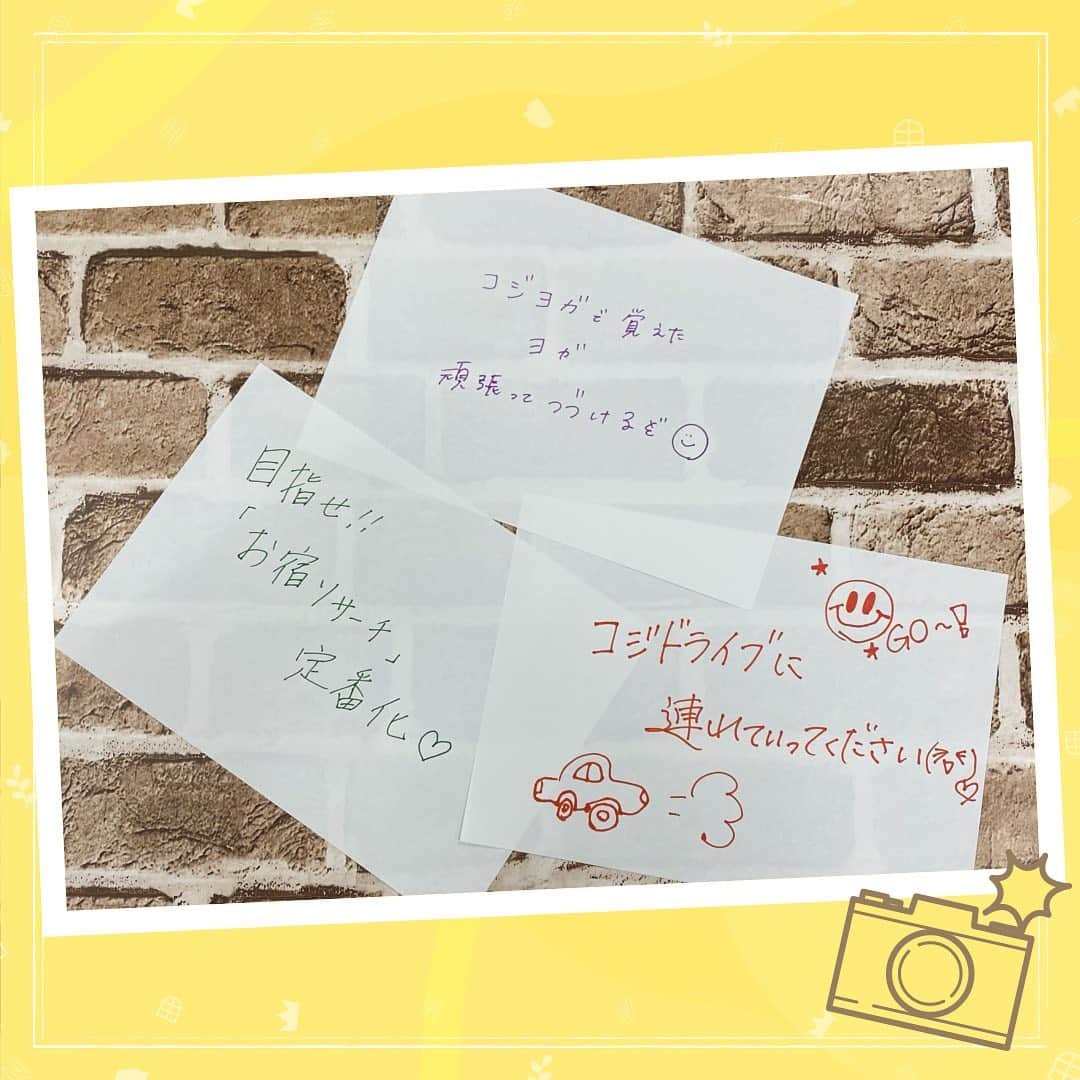 コジヨガで覚えた
ヨガ
頑張ってつづけるぞ
目指せ!!
「お宿リサーチ」
定番化♡
GO~!
コジドライブに
連れていってください